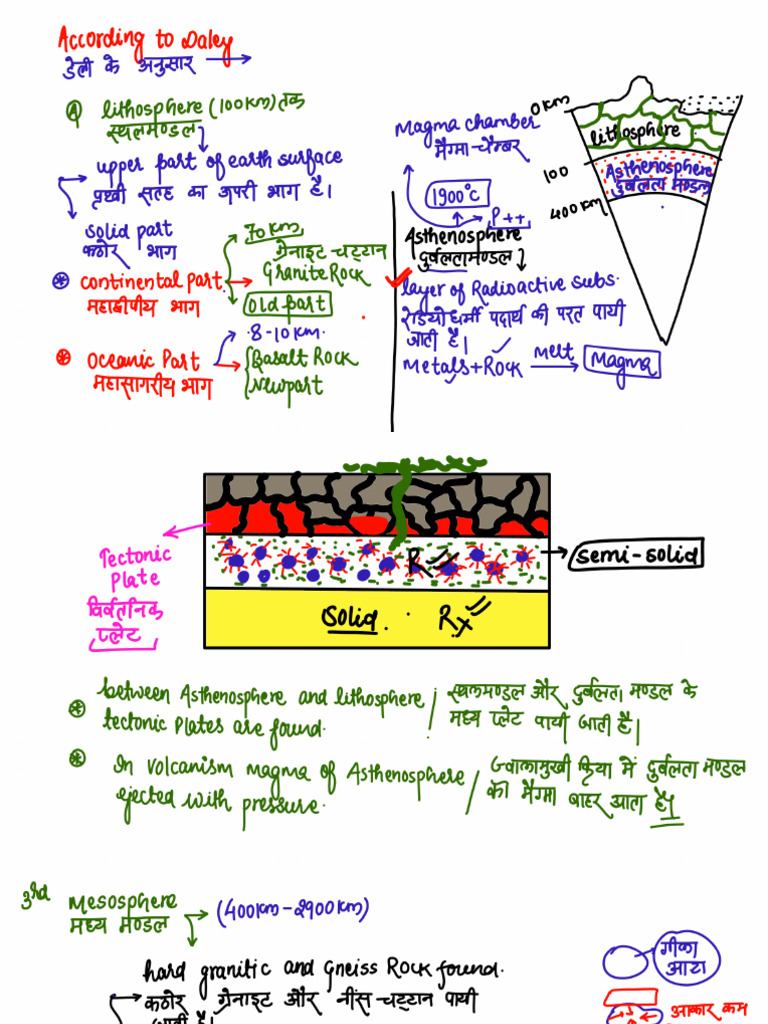 According to Daley
डेली के अनुसार
lithosphere (100km) तक
स्थलमण्डल
upper part of earth surface
पृथ्वी सतह का ऊपरी भाग है।
solid part
कठोर भाग
70 km
ग्रेनाइट चट्टान
Granite Rock
continental part
महाद्वीपीय भाग
old part
8-10 km.
Oceanic Part
महासागरीय भाग
Basalt Rock
New part
Magma chamber
मैग्मा चैम्बर
1900°C
P++
Asthenosphere
दुर्बलतामण्डल
layer of Radioactive subs.
रेडियोधर्मी पदार्थ की परत पायी
जाती है।
Metals + Rock
Melt
Magma
0 km
lithosphere
100
Asthenosphere
दुर्बलता मण्डल
400 km
Tectonic
Plate
विवर्तनिक
प्लेट
semi-solid
Solid.
between Asthenosphere and lithosphere / स्थलमण्डल और दुर्बलता मण्डल के
tectonic Plates are found. मध्य प्लेट पायी जाती है।
In volcanism magma of Asthenosphere / ज्वालामुखी क्रिया में दुर्बलता मण्डल
ejected with pressure. को मैग्मा बाहर आता है।
3rd
Mesosphere
मध्य मण्डल
(400km-2900km)
hard granitic and Gneiss Rock found.
कठोर ग्रेनाइट और नीस चट्टान पायी
जाती है।
गीला
आटा
आकार कम